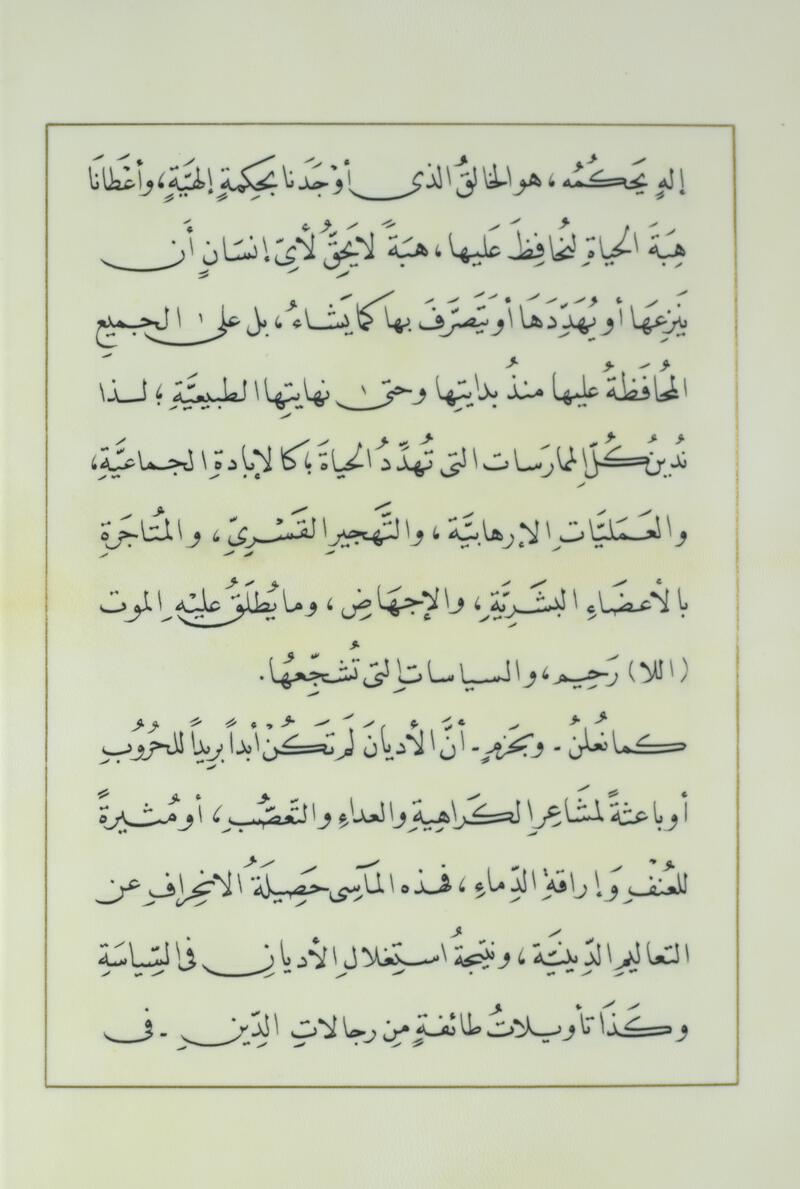 إلهٍ يَحكُمُه، هو الخالقُ الذى أوْجَدَنا بحِكمةٍ إلهيَّةٍ، وأعْطَانَا
هِبَةَ الحياةِ لنُحافِظَ عَليها، هبَةً لا يَحِقُّ لأىِّ إنسَانٍ أَن
يَنزِعَهَا أو يُهَدِّدَهَا أو يَتَصَرَّفَ بها كما يَشَاءُ، بل على الجميعِ
المُحافَظةُ عليها منذُ بدايتِها وحتى نهايتِها الطبيعيَّةِ؛ لذا
نُدينُ كُلَّ الممارَسات التى تُهدِّدُ الحياةَ؛ كالإبادةِ الجماعيَّةِ،
والعَمَليَّاتِ الإرهابيَّة، والتَّهجيرِ القَسْرِىِّ، والمُتاجَرةِ
بالأعضَاءِ البشَريَّةِ، والإجهَاضِ، وما يُطلَقُ عليْهِ الموت
(اللا) رَحِيم، والسياساتِ التى تُشجِّعُهَا.
كما نُعلنُ - وبحَزمٍ - أنَّ الأديانَ لَم تَكُنْ أبداً بريداً للحُرُوبِ
أو باعثةً لمشَاعِرِ الكَراهِيةِ والعداءِ والتَّعَصُّبِ، أو مُثيرةً
للعُنْفِ وَإراقةِ الدِّماءِ، فهذه المآسِى حَصِيلَةُ الانحِرافِ عن
التعاليمِ الدِّينيَّة، ونتيجةُ استِغلالِ الأديانِ فى السِّياسَةِ
وكَذَا تأويلاتُ طائفةٍ مِن رجالاتِ الدِّينِ - فى